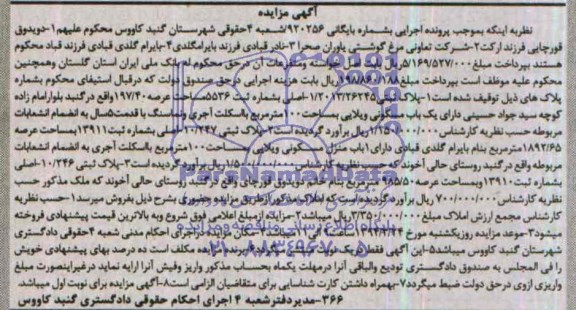 آگهی مزایده
نظریه اینکه بموجب پرونده اجرایی بشماره بایگانی ۹۲۰۲۵۶/شعبه ۴حقوقی شهرستان گنبد کاووس محکوم علیهم۱-دویدوق
قورچایی فرزند ارکت۲-شرکت تعاونی مرغ گوشتی یاوران صحرا ۳-نادر قبادی فرزند بایرامگلدی۴-بایرام گلدی قبادی فرزند قباد محکوم
هستند بپرداخت مبلغ ۵/۱۶۹/۵۲۷/۰۰۰ریال آن درحق محکوم له بانک ملی ایران استان گلستان وهمچنین
محکوم علیه موظف است بپرداخت مبلغ ریال بابت هزینه اجرایی درحق صندوق دولت که درقبال استیفای محکوم بشماره
پلاک های ذیل توقیف شده است۱-پلاک ثبتی اصلی بشماره ثبت ۵۵۳۶ بمساحت عرصه ۱۹۷/۴۰ واقع درگنبد بلوارامام زاده
کوچه سید جواد حسینی دارای یک باب مسکونی ویلایی بمساحت ۱۰۰مترمربع باسکلت آجری ونماسنگ با قدمت۵سال به انضمام انشعابات
مربوطه حسب نظریه کارشناس ریال برآورد گردیده است۲-پلاک ثبتی اصلی بشماره ثبت۱۳۹۱۱ بمساحت عرصه
۱۸۹۲/۶۵مترمربع بنام بایرام گلدی قبادی دارای ۱باب منزل مسکونی ویلایی بمساحت۱۰۰مترمربع باسکلت آجری به انضمام انشعابات
مربوطه واقع در گنبد روستای حالی آخوند که حسب نظریه کارشناس ریال برآورد گردیده است۳-پلاک ثبتی ۱۰/۲۴۶-اصلی
بشماره ثبت۱۳۹۱۰ وبمساحت عرصه مترمربع بنام خانم دویدوق قورچای واقع در گنبد روستای حالی آخوند که حسب
نظریه کارشناس ۷۰۰/۰۰۰/۰۰۰ ریال برآورد گردیده است که املاک مذکور ازطریق مزایده وحضوری بشرح ذیل بفروش میرسد۱-حسب نظریه
کارشناس مجمع ارزش املاک مبلغ ۳/۳۵۰/۰۰۰/۰۰۰ریال میباشد۲-مزایده ازمبلغ اعلامی فوق شروع وبه بالاترین قیمت پیشنهادی فروخته
میشود۳-موعد مزایده روزیکشنبه مورخ اجرای احکام مدنی شعبه ۴حقوقی دادگستری
شهرستان گنبد کاووس میباشد۵-این آگهی فقط برنده مزایده مکلف است ده درصد بهای پیشنهادی خویش
را فی المجلس به صندوق دادگستری تودیع والباقی آنرا درمهلت یکماه بحساب مذکور واریز وفیش آنرا ارایه نماید درغیراینصورت مبلغ
واریزی ازوی درحق دولت ضبط میگردد۷-بهمراه داشتن کارت شناسایی برای متقاضیان الزامی است۸-آگهی مزایده برای نوبت اول میباشد.
۳۶۶-مدیردفترشعبه ۴ اجرای احکام حقوقی دادگستری گنبد کاووس
ParsNamadData